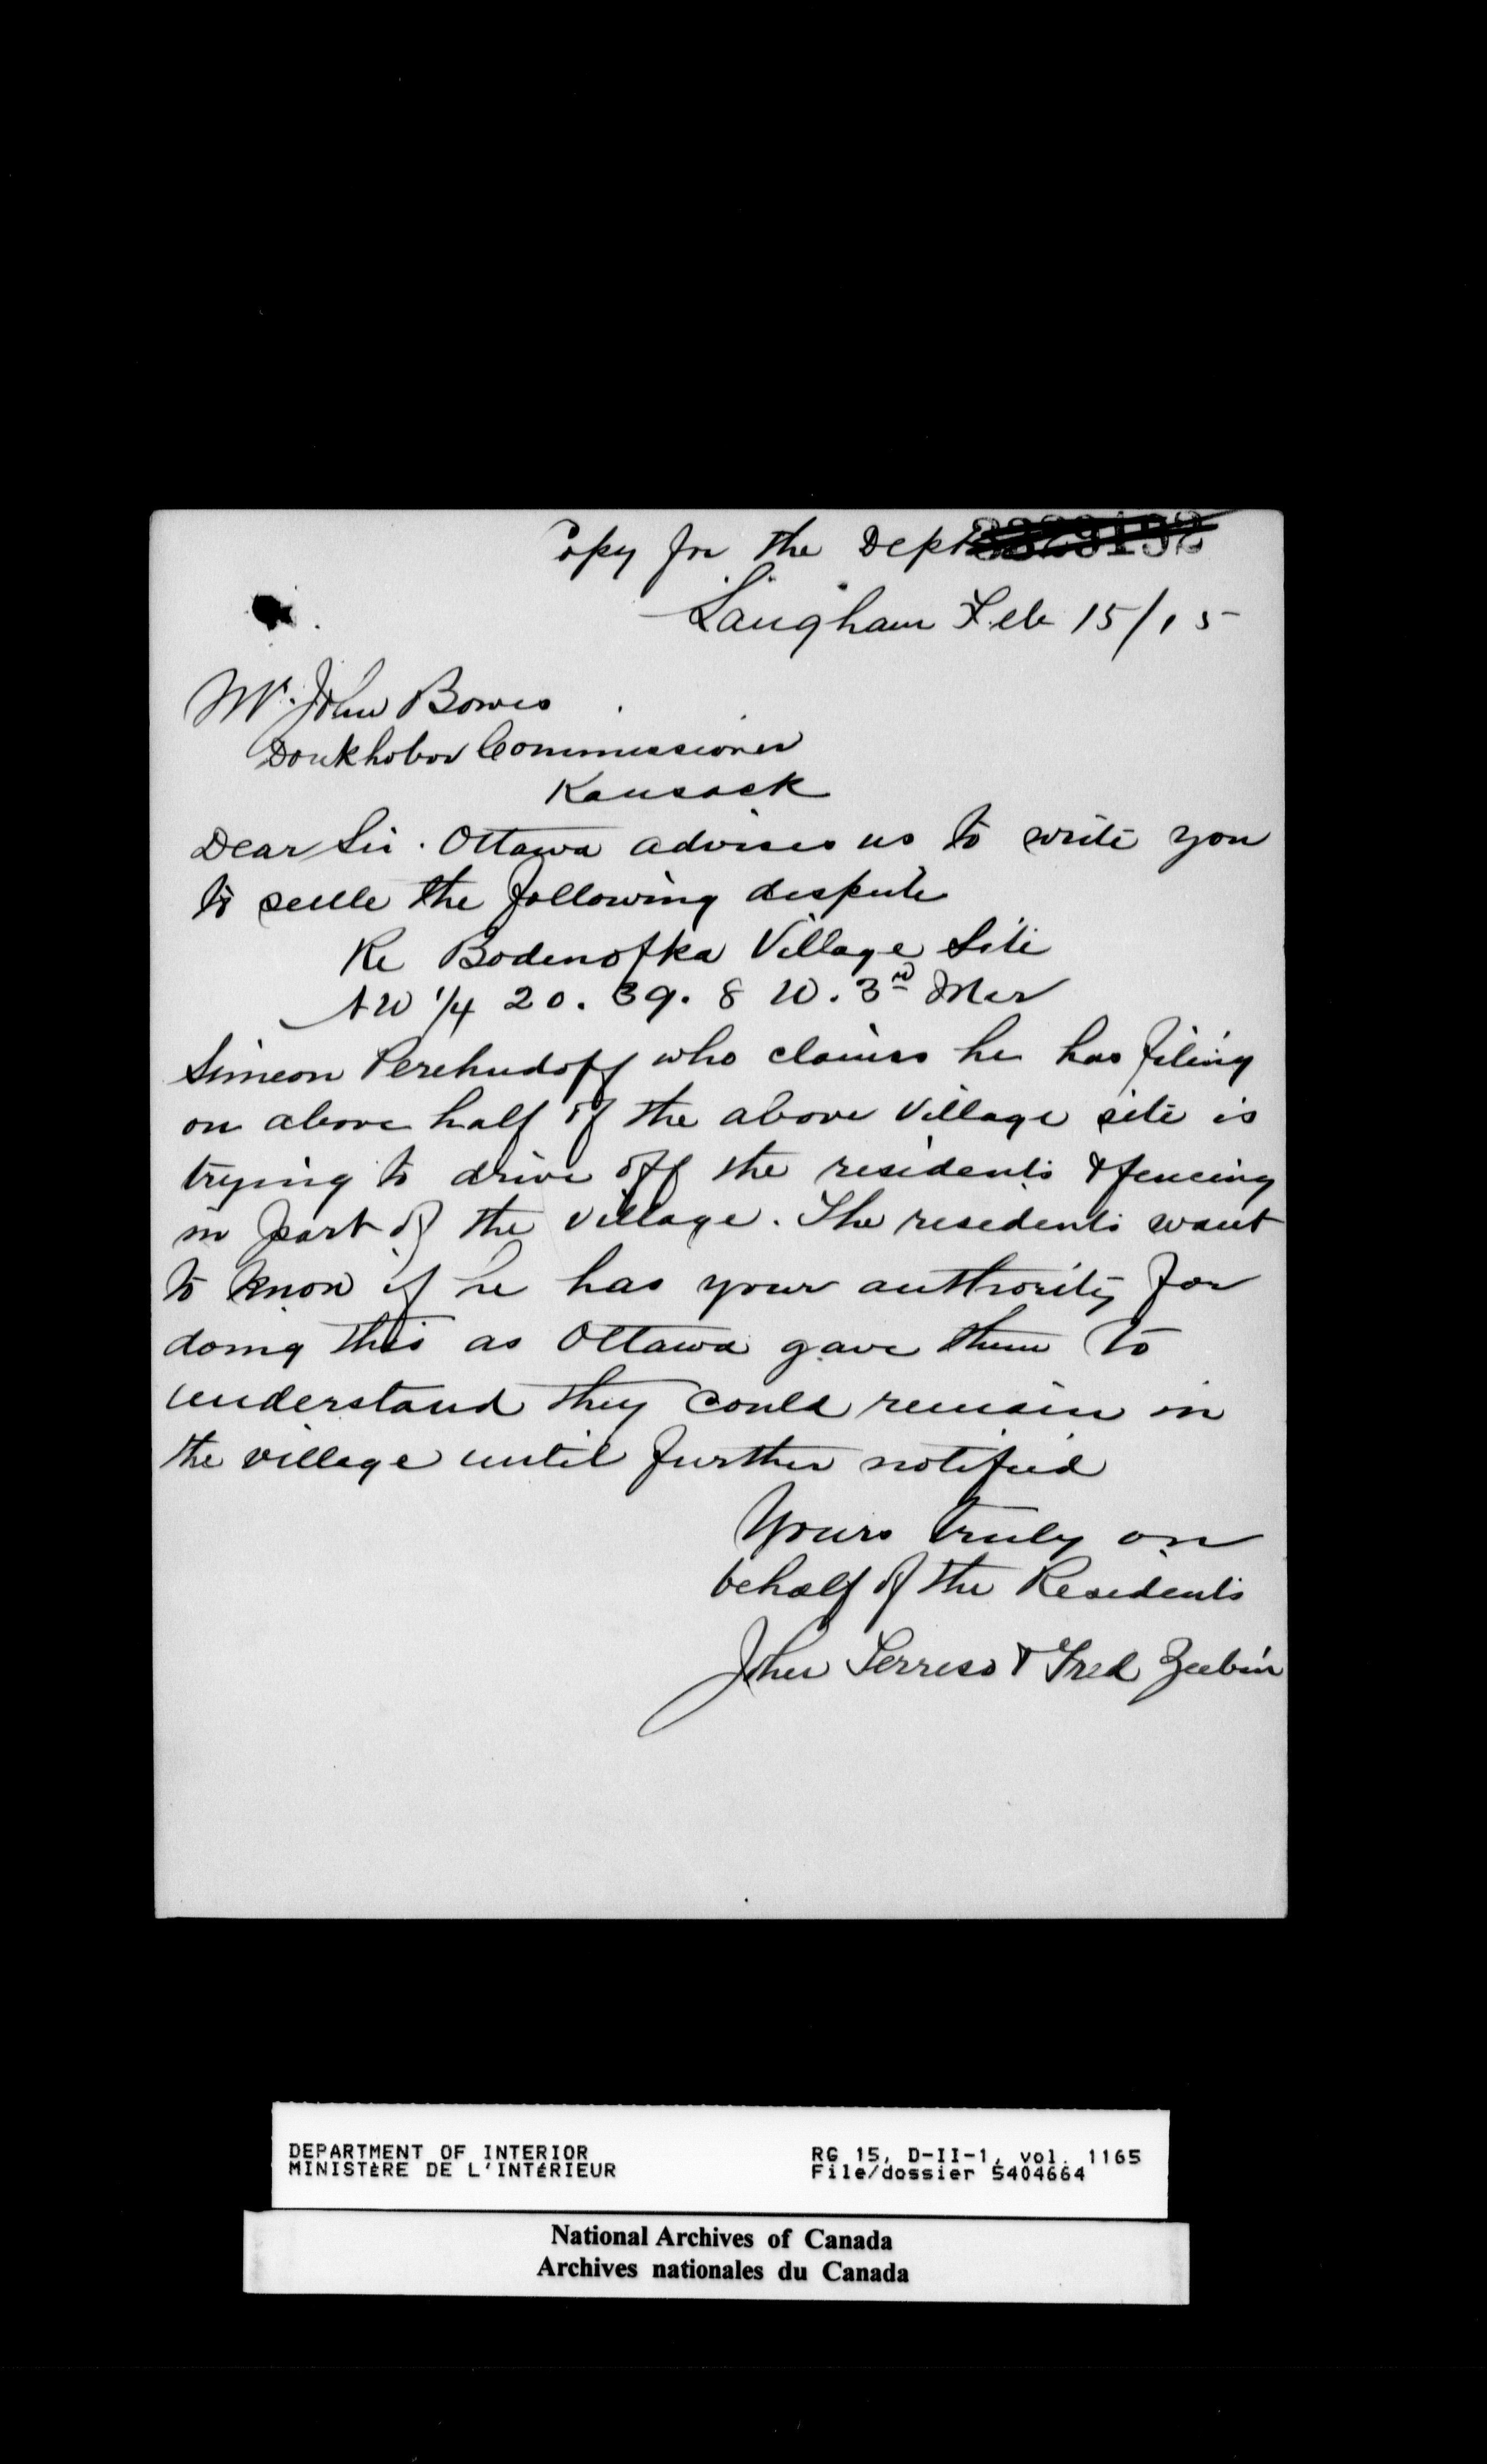 Copy for the Dept
Langham Feb 15/15
Mr. John Bowes
Doukhobor Commissioner
Kamsack
Dear Sir. Ottawa advises us to write you
to settle the following dispute
Re Bodenofka Village Site
NW 1/4 20. 39. 8 W. 3rd Mer
Simeon Perehudoff who claims he has filing
on above half of the above Village site is
trying to drive off the residents & fencing
in part of the village. The residents want
to know if he has your authority for
doing this as Ottawa gave them to
understand they could remain in
the village until further notified
Yours truly on
behalf of the Residents
John & Fred Zeebin
DEPARTMENT OF INTERIOR
MINISTÈRE DE L'INTÉRIEUR
RG 15, D-II-1, vol. 1165
File/dossier 5404664
National Archives of Canada
Archives nationales du Canada